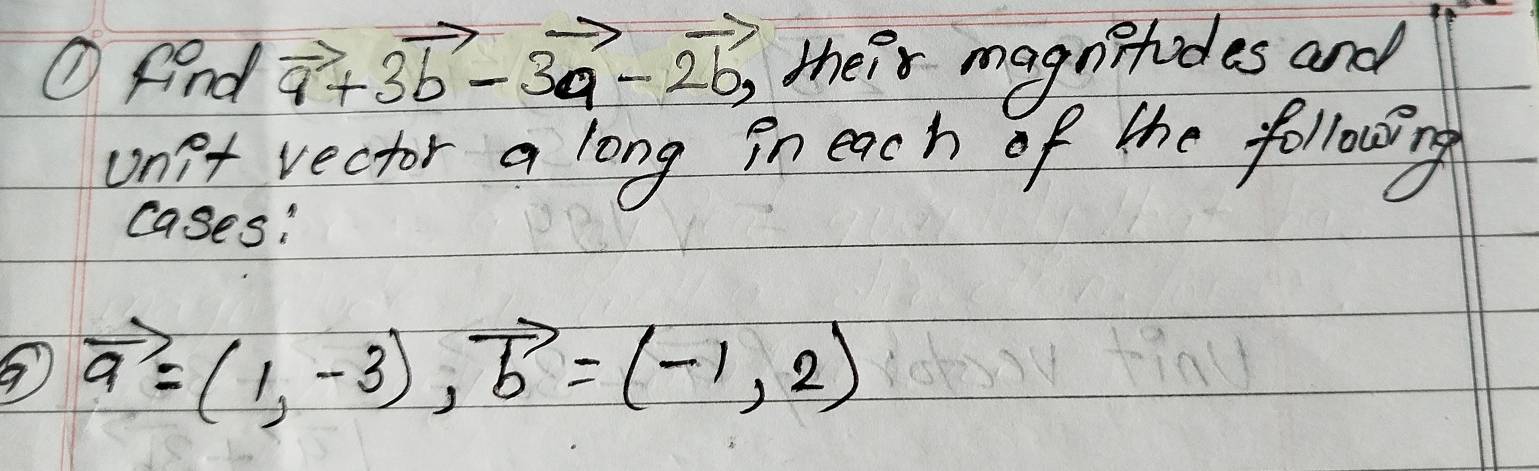 ① find a⃗+3b⃗-3a⃗-2b⃗, their magnitudes and
unit vector a long in each of the following
cases:
a⃗=(1,-3), b⃗=(-1,2)